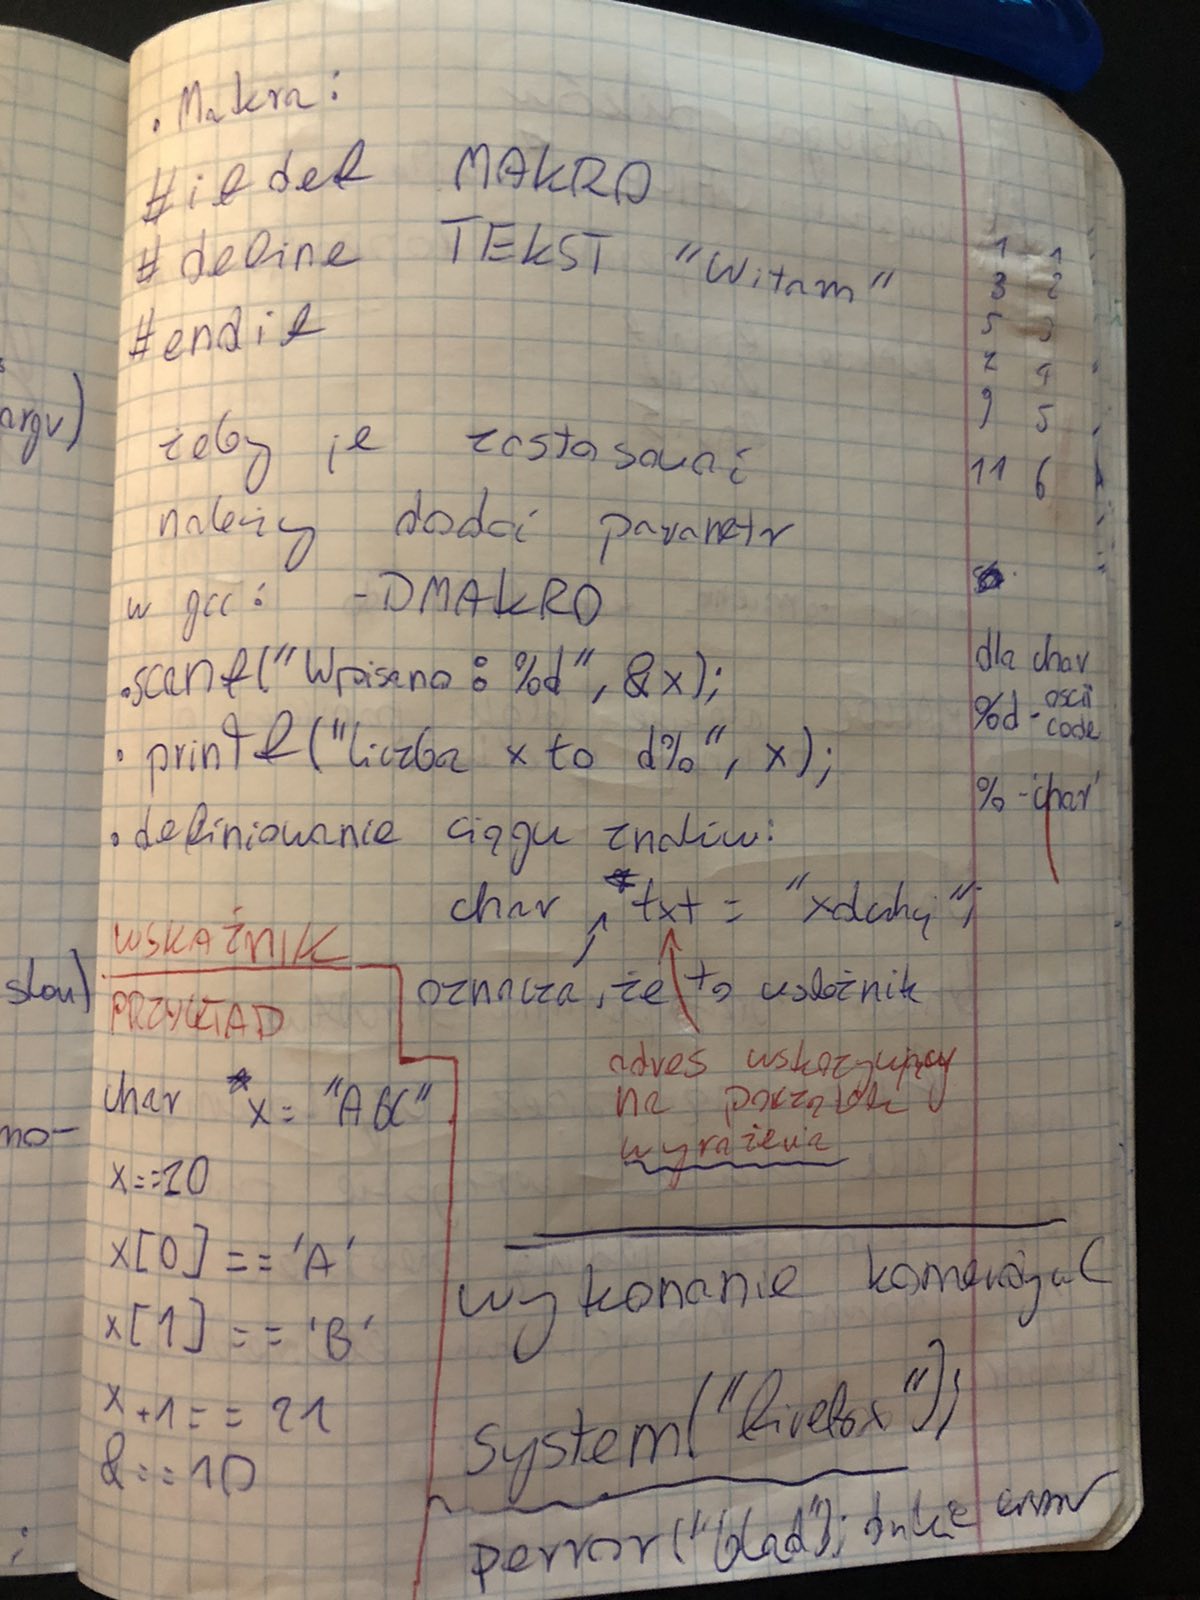 • Makra:
#ifdef MAKRO
#define TEKST "Witam"
#endif
żeby je zastosować
należy dodać parametr
w gcc: -DMAKRO
• scanf("Wpisano: %d", &x);
• printf("liczba x to d%", x);
• definiowanie ciągu znaków:
char *txt = "xdchj";
oznacza, że to wskaźnik
adres wskazujący
na początek
wyrażenia
WSKAŹNIK
PRZYKŁAD
char *x = "ABC"
x==20
x[0] == 'A'
x[1] == 'B'
x+1 == 21
&==10
wykonanie
system("firefox");
perror("błąd"); error
1 1
3 2
5 3
7 4
9 5
11 6
dla char
%d - ascii
code
% - char
argv)
słow)
mo-
;